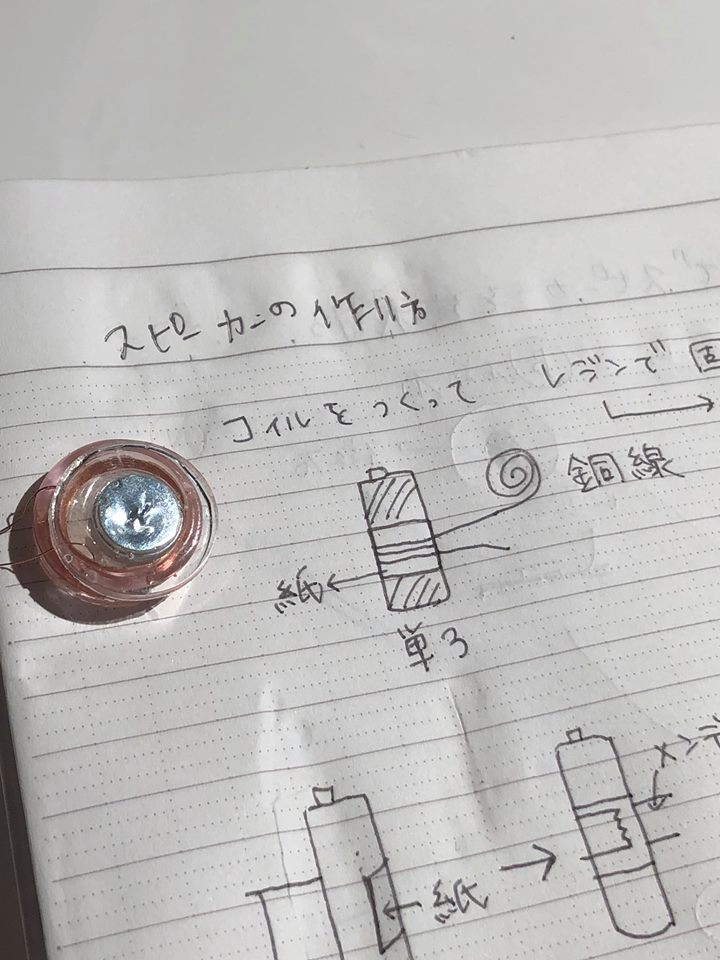 スピーカーの作り方
コイルをつくって レジンで固
銅線
紙
単3
メンテ
紙